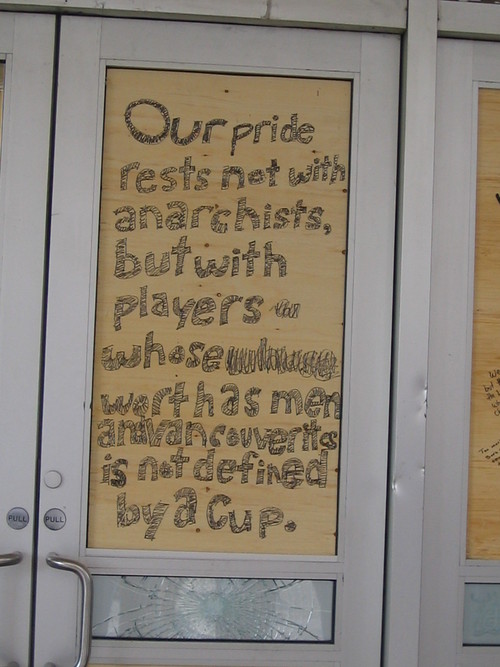 Our pride
rests not with
anarchists,
but with
players
whose
worth as men
and vancouverites
is not defined
by a Cup.
PULL PULL